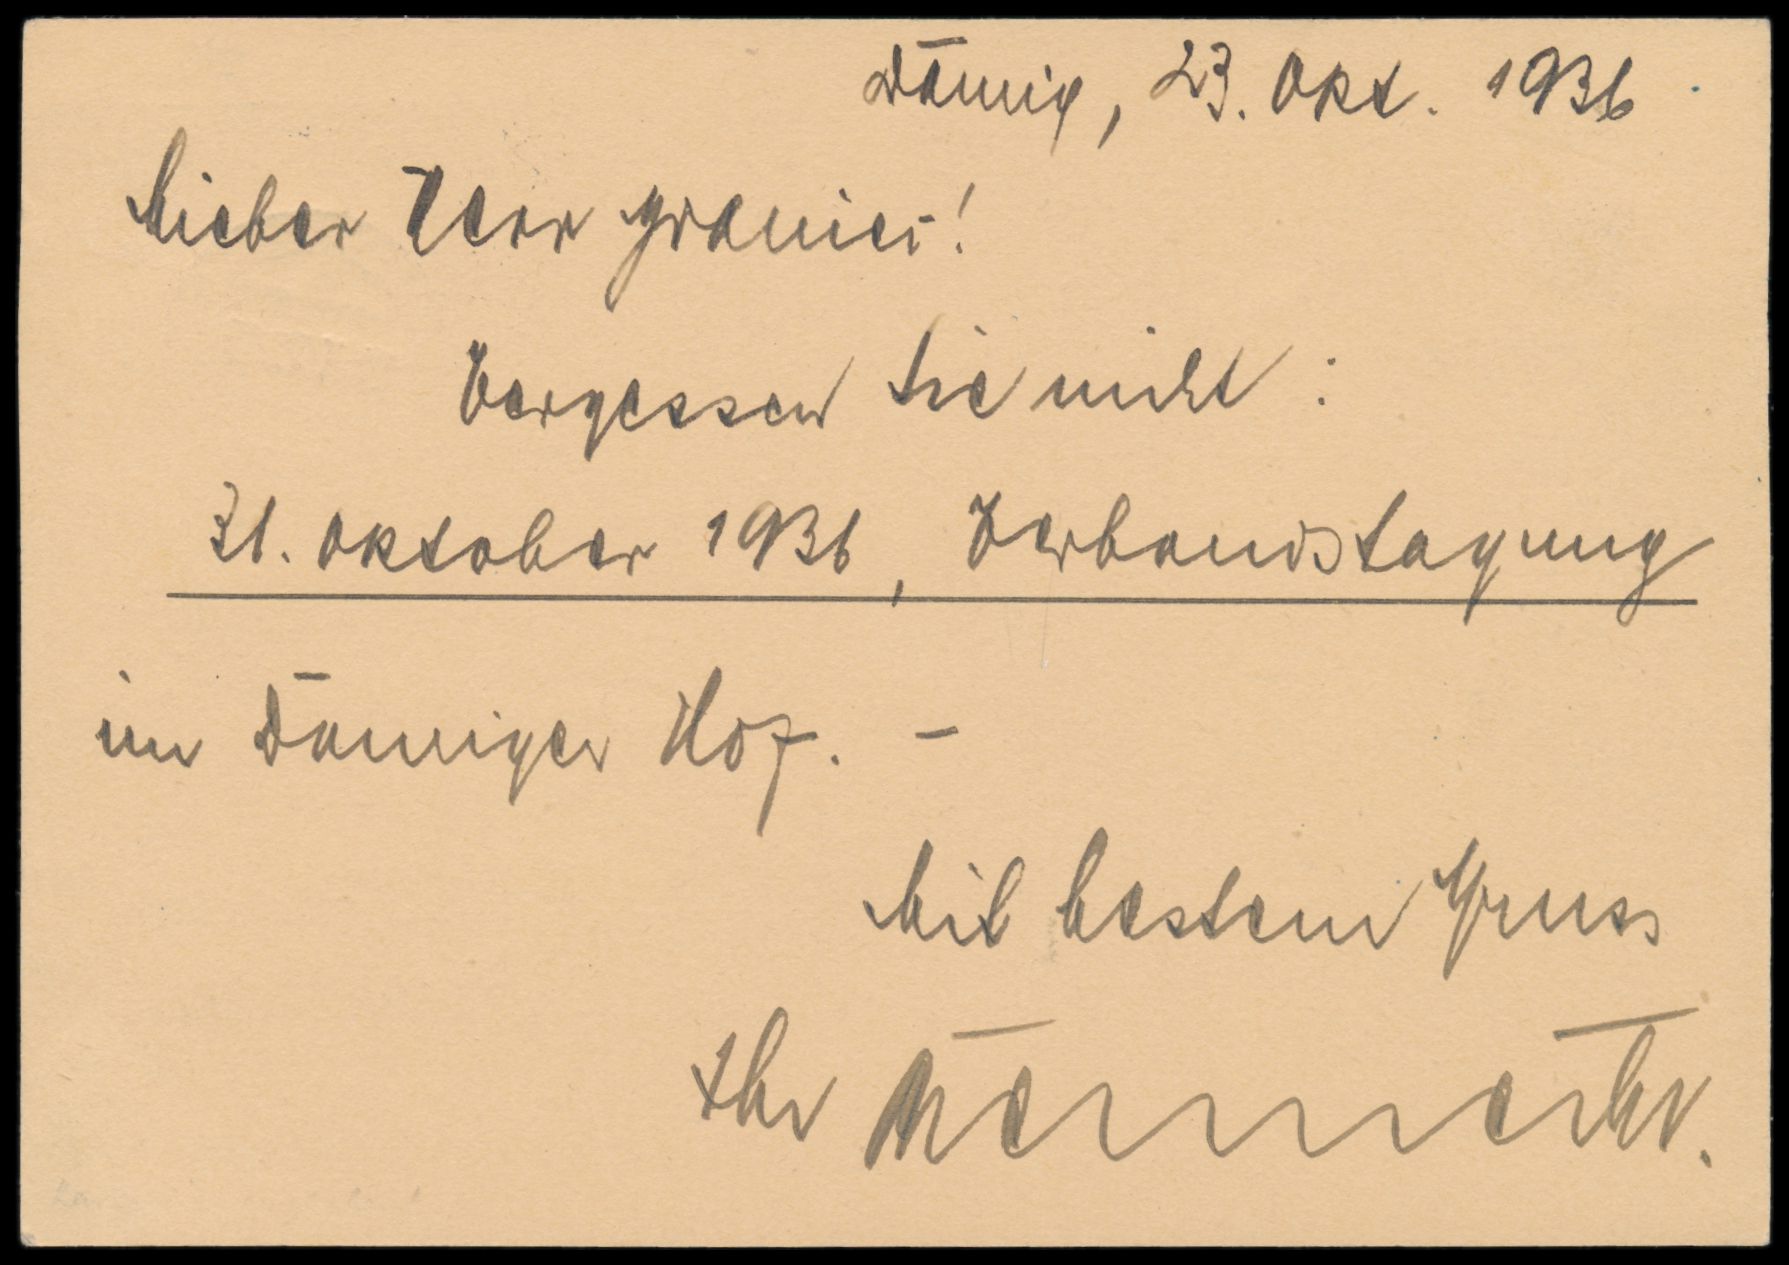 Danzig, 23. Okt. 1936.
Lieber Herr Granier!
Vergessen Sie nicht:
31. Oktober 1936, Verbandstagung
im Danziger Hof. –
Mit bestem Gruss
Ihr